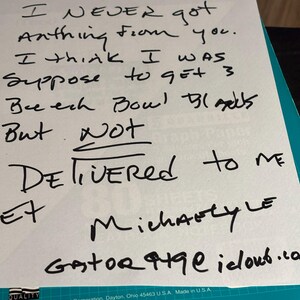 I NEVER got
anything from you.
I think I was
suppose to get 3
Beech Bowl Blanks
But NOT
DELIVERED to ME
ET
MichaeLyLE
GATOR949@icloud.co
QUALITY
Dayton, Ohio 45463 U.S.A. Made in U.S.A.